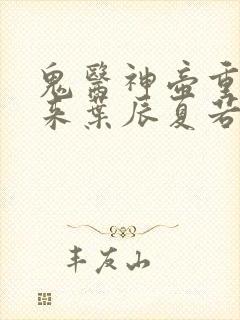 鬼醫神壺重
来葉辰夏若
丰友山